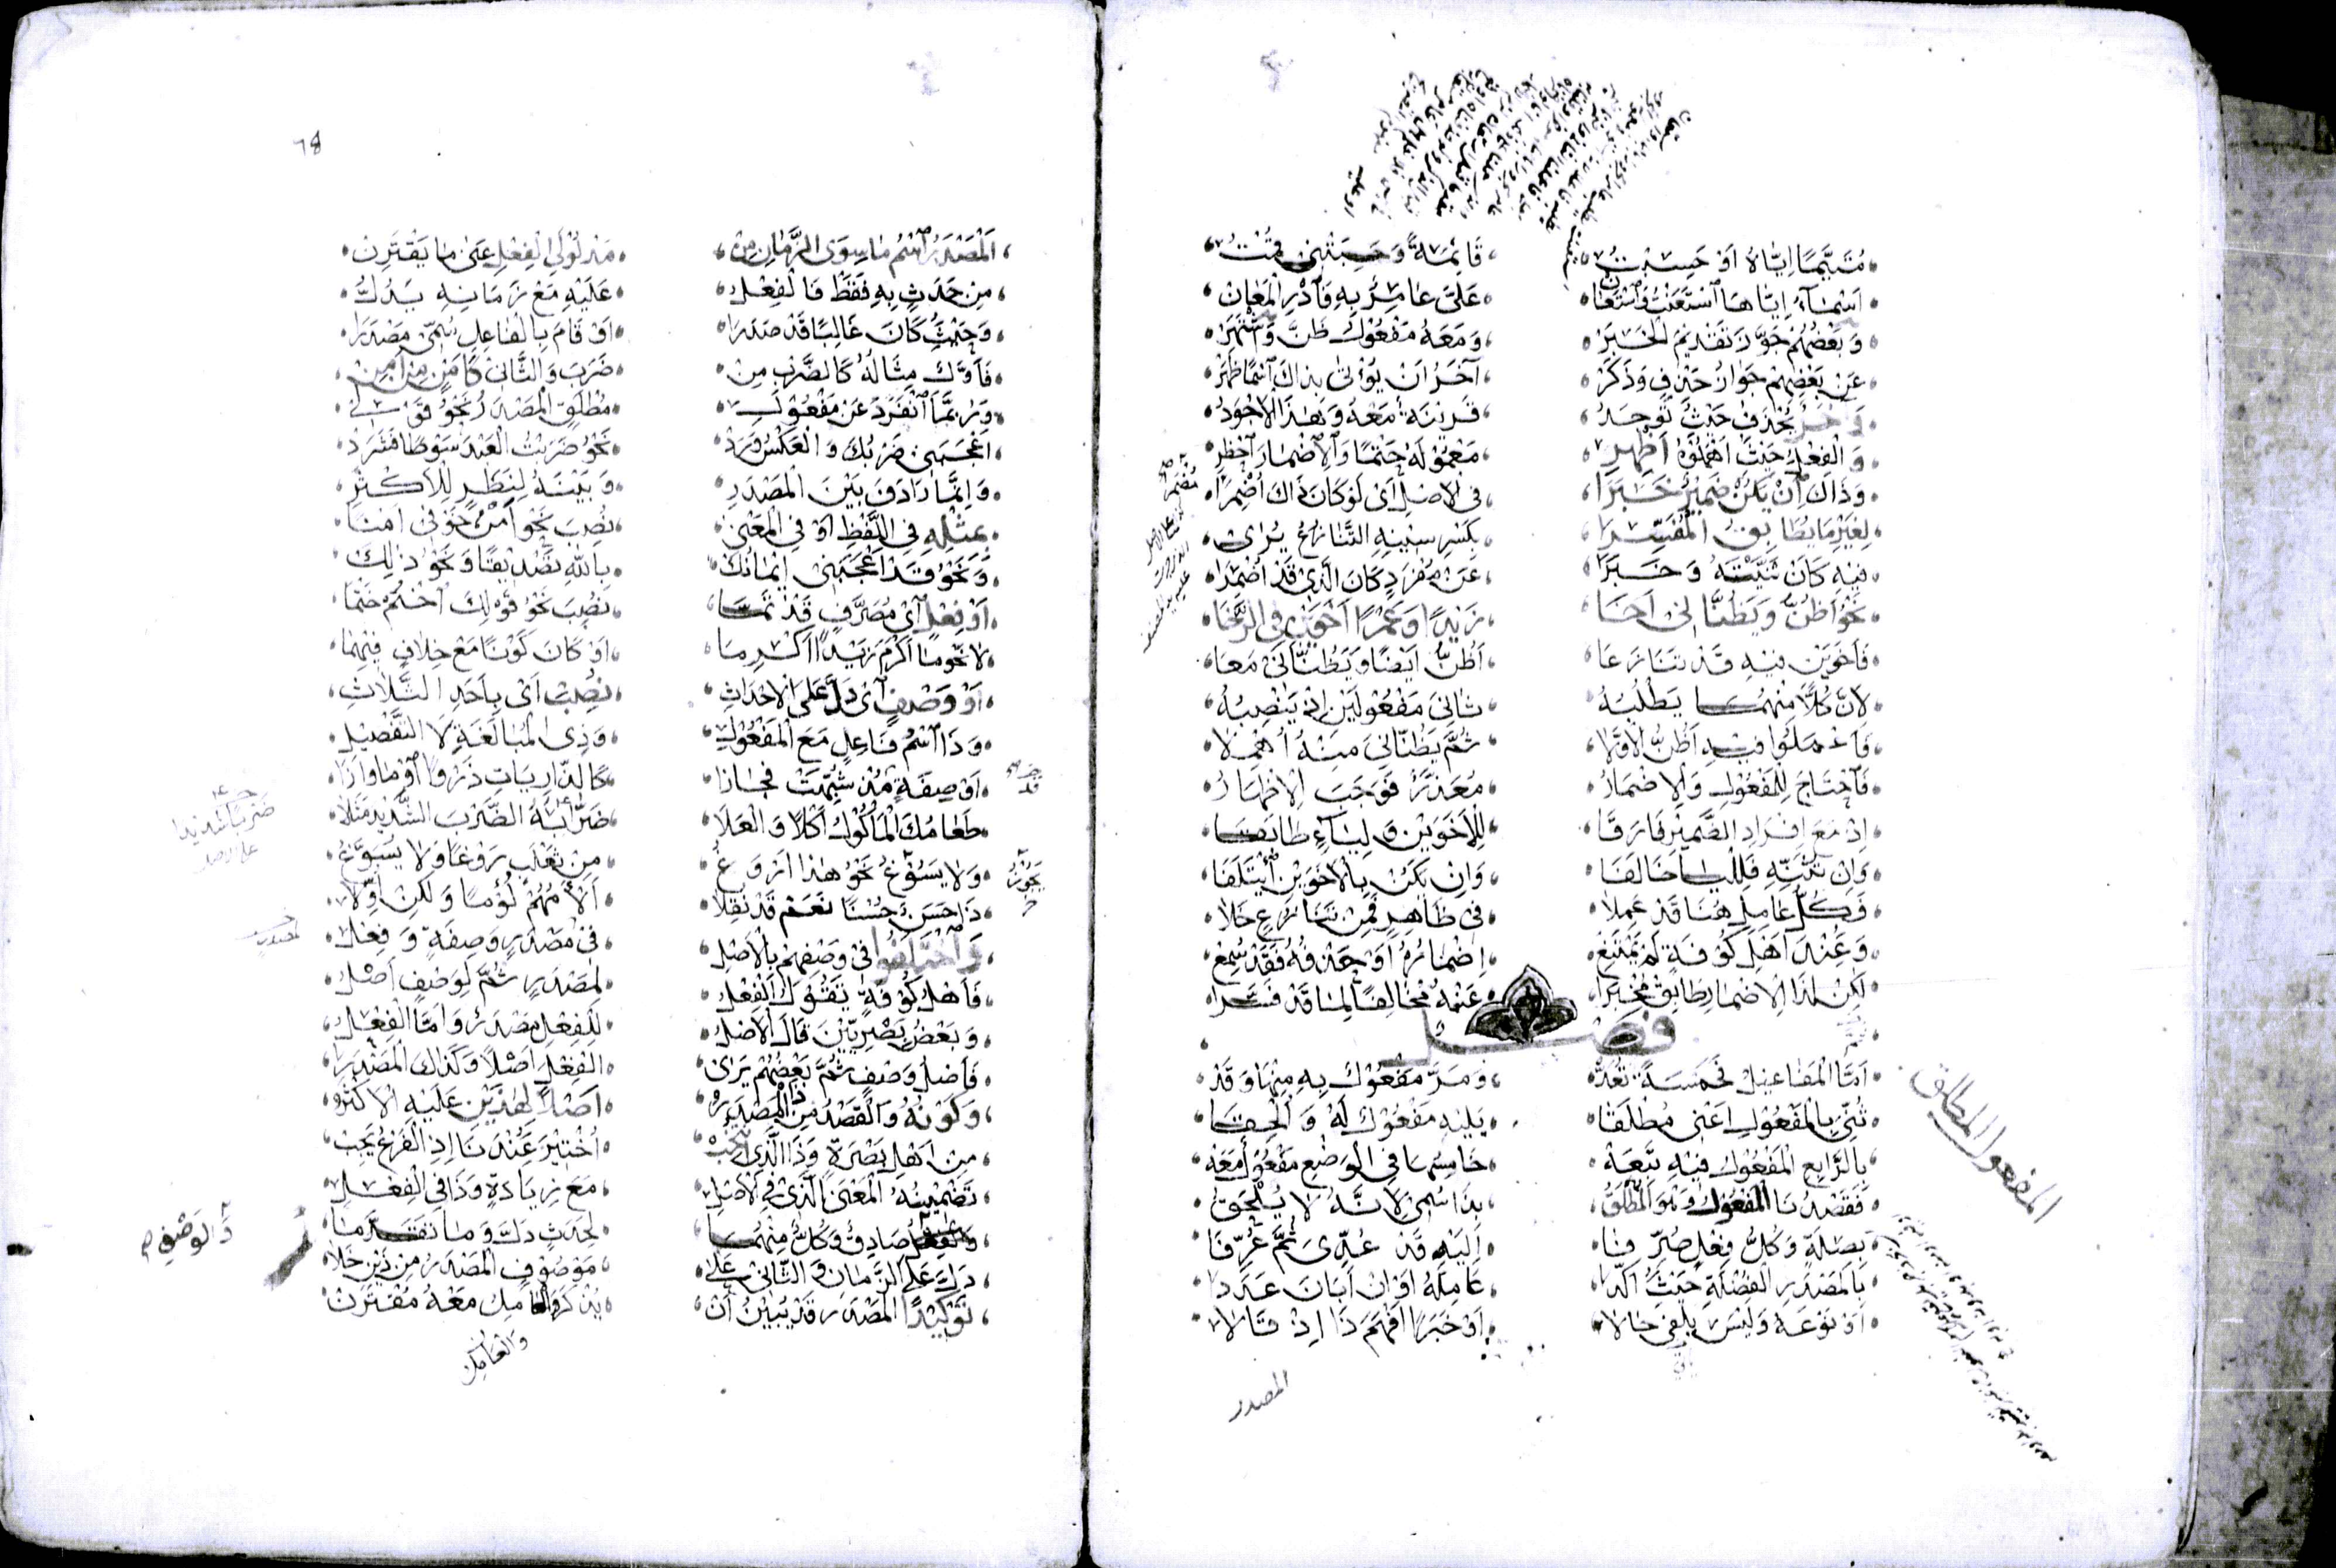 مُتَيَّمًا اِيَّاهُ اَوْ حَسِبْتُ قَائِمَةً وَحَسِبَتْنِى قُمْتُ
اَسْمَآءُ اِيَّاهَا ٱسْتَعَنْتُ فَٱسْتَعَانْ عَلَىَّ عَامِرٌ بِهِ فَٱدْرِ الْمَعَانْ
وَبَعْضُهُمْ جَوَّزَ تَقْدِيمَ الْخَبَرْ وَمَعَهُ مَفْعُوْلُ ظَنَّ وَٱشْتَهَرْ
عَنْ بَعْضِهِمْ جَوَازُ حَذْفٍ وَذَكَرْ آخَرُ اَنْ يُؤْتٰى بِذَاكَ ٱسْمًا ظَهَرْ
بِحَذْفٍ حَيْثُ تُوجَدُ قَرِيْنَةٌ مَعْهُ وَهٰذَا الْاَجْوَدُ
وَالْفِعْلَ حَيْثُ اَهْمَلُوْهُ اَظْهِرِ مَعْمُوْلَهُ حَتْمًا وَالْاِضْمَارَ ٱحْظِرِ
وَذَاكَ اِنْ يَكُنْ ضَمِيْرٌ خَبَرَا فِى الْاَصْلِ اَىْ لَوْ كَانَ ذَاكَ اُضْمِرَا
لِغَيْرِ مَا يُطَابِقُ الْمُفَسِّرَا بِكَسْرِ سِيْنِهِ التَّنَازُعُ يُرٰى
فِيْهِ كَاَنْ ثَنَّيْتَهُ وَخَبَرَا عَنْ مُفْرَدٍ كَانَ الَّذِىْ قَدْ اُضْمِرَا
نَحْوُ اَظُنُّ وَيَظُنَّانِى اَخَا زَيْدًا وَعَمْرًا اَخَوَيْنِ فِى الرَّخَا
فَاَخَوَيْنِ فِيْهِ قَدْ تَنَازَعَا اَظُنُّ اَيْضًا وَيَظُنَّانِىْ مَعَا
لِاَنَّ كُلًّا مِنْهُمَا يَطْلُبُهُ ثَانِىَ مَفْعُوْلَيْنِ اِذْ يَنْصِبُهُ
فَاَعْمَلُوْا فِيْهِ اَظُنُّ الْاَوَّلَا ثُمَّ يَظُنَّانِىَ مِنْهُ اُهْمِلَا
فَٱحْتَاجَ لِلْمَفْعُوْلِ وَالْاِضْمَارُ مُعَذَّرٌ فَوَجَبَ الْاِظْهَارُ
اِذْ مَعَ اِفْرَادِ الضَّمِيْرِ فَارَقَا لِلْاَخَوَيْنِ وَلِيَاءٍ طَابَقَا
وَاِنْ تُثَنِّهِ فَلِلْيَا خَالَفَا وَاِنْ يَكُنْ بِالْاَخَوَيْنِ ٱئْتَلَفَا
وَكُلُّ عَامِلٍ هُنَا قَدْ عَمِلَا فِى ظَاهِرٍ فَمِنْ تَنَازُعٍ خَلَا
وَعِنْدَ اَهْلِ كُوْفَةٍ لَمْ يَمْتَنِعْ اِضْمَارُهُ اَوْ حَذْفُهُ فَقَدْ سُمِعْ
لٰكِنْ لِذَا الْاِضْمَارِ طَابِقْ مُخْبَرَا عَنْهُ مُخَالِفًا لِمَا قَدْ فَسَّرَا
فصل
اَمَّا الْمَفَاعِيْلُ فَخَمْسَةً تُعَدُّ وَمَرَّ مَفْعُوْلٌ بِهِ مِنْهَا وَقَدْ
ثُنِّىَ بِالْمَفْعُوْلِ اَعْنِى مُطْلَقَا يَلِيْهِ مَفْعُوْلٌ لَهُ وَاُلْحِقَا
بِالرَّابِعِ الْمَفْعُوْلِ فِيْهِ تَبِعَهْ خَامِسُهَا فِى الْوَضْعِ مَفْعُوْلٌ مَعَهْ
فَقَصْدُنَا الْمَفْعُوْلُ وَهْوَ الْمُطْلَقُ بِذَا سُمِىْ لِاَنَّهُ لَا يُلْحَقُ
بِصِلَةٍ وَكُلُّ فِعْلٍ صُرِّفَا اِلَيْهِ قَدْ عُدِّىَ ثُمَّ عُرِّفَا
بِالْمَصْدَرِ الْفُضْلَةِ حَيْثُ اَكَّدَا عَامِلَهُ اَوْ اِنْ اَبَانَ عَدَدَا
اَوْ نَوْعَهُ وَلَيْسَ يُلْفٰى حَالَا اَوْ خَبَرًا اَفْهَمَ ذَا اِذْ قَالَا
المصدر
المفعول المطلق
٦٨
اَلْمَصْدَرُ ٱسْمُ مَا سِوَى الزَّمَانِ مِنْ مَدْلُوْلَىِ الْفِعْلِ عَنٰى مَا يَقْتَرِنْ
مِنْ حَدَثٍ بِهِ فَقَطْ فَالْفِعْلُ عَلَيْهِ مَعْ زَمَانِهِ يَدُلُّ
وَحَيْثُ كَانَ غَالِبًا قَدْ صَدَرَا اَوْ قَامَ بِالْفَاعِلِ سُمِّىْ مَصْدَرَا
فَاَوَّلٌ مِثَالُهُ كَالضَّرْبِ مِنْ ضَرَبَ وَالثَّانِىْ كَاَمْنٍ مِنْ اَمِنْ
وَرُبَّمَا ٱنْفَرَدَ عَنْ مَفْعُوْلِ مُطْلَقٍ الْمَصْدَرُ نَحْوُ قَوْلِىْ
اَعْجَبَنِى ضَرْبُكَ وَالْعَكْسُ وَرَدْ نَحْوُ ضَرَبْتُ الْعَبْدَ سَوْطًا فَشَرَدْ
وَاِنَّمَا رَادَفَ بَيْنَ الْمَصْدَرِ وَبَيْنَهُ لِنَظَرٍ لِلْاَكْثَرِ
بِمِثْلِهِ فِى اللَّفْظِ اَوْ فِى الْمَعْنٰى نُصِبَ نَحْوُ اَمْنُ خَوْفِىْ اَمْنَا
وَنَحْوُ قَدْ اَعْجَبَنِىْ اِيْمَانُكَ بِاللّٰهِ تَصْدِيْقًا وَنَحْوُ ذٰلِكَ
اَوْ فِعْلٍ اَىْ مُصَرَّفٍ قَدْ تَمَّا نُصِبَ نَحْوُ قَوْلِكَ ٱحْتُمْ حَتْمَا
لَا نَحْوُ مَا اَكْرَمَ زَيْدًا اَكْرِمَا اَوْ كَانَ كَوْنًا مَعْ خِلَافٍ فِيْهِمَا
اَوْ وَصْفٍ اَىْ دَلَّ عَلَى الْاَحْدَاثِ نُصِبَ اَىْ بِاَحَدِ الثَّلَاثِ
وَذَا ٱسْمُ فَاعِلٍ مَعَ الْمَفْعُوْلِ وَذِى الْمُبَالَغَةِ لَا التَّفْضِيْلِ
اَوْ صِفَةٍ قَدْ شُبِّهَتْ فَجَازَا كَالذَّارِيَاتِ ذَرْوًا
طَعَامُكَ الْمَأْكُوْلُ اَكْلًا وَالْعَلَا ضَرَّابَةُ الضَّرْبَ الشَّدِيْدَ مَثَلَا
وَلَا يَسُوْغُ نَحْوُ هٰذَا اَرْوَغُ مِنْ ثَعْلَبٍ رَوْغًا وَلَا يُسَوَّغُ
ذَا حَسَنٌ حُسْنًا نَعَمْ قَدْ نُقِلَا اَلْاَمُهُمْ لُؤْمًا وَلٰكِنْ اُوِّلَا
وَٱخْتَلَفُوْا فِىْ وَصْفِهِمْ بِالْاَصْلِ فِىْ مَصْدَرٍ وَصِفَةٍ وَفِعْلِ
فَاَهْلُ كُوْفَةٍ تَقُوْلُ الْفِعْلُ لِمَصْدَرٍ ثُمَّ لِوَصْفٍ اَصْلُ
وَبَعْضُ بَصْرِيِّيْنَ قَالَ الْاَصْلُ لِلْفِعْلِ مَصْدَرٌ وَاَمَّا الْفِعْلُ
فَاَصْلُ وَصْفٍ ثُمَّ بَعْضُهُمْ يَرٰى الْفِعْلَ اَصْلًا وَكَذَاكَ الْمَصْدَرَا
وَكَوْنُهُ وَالْقَصْدُ مِنْ ذَا الْمَصْدَرُ اَصْلًا لِهٰذَيْنِ عَلَيْهِ الْاَكْثَرُ
مِنْ اَهْلِ بَصْرَةٍ وَذَا الَّذِى ٱنْتُخِبْ اُخْتِيْرَ عِنْدَنَا اِذِ الْفَرْعُ يَجِبْ
تَضْمِيْنُهُ الْمَعْنَى الَّذِىْ فِى الْاَصْلِ مَعَ زِيَادَةٍ وَذَا فِى الْفِعْلِ
صَادِقٌ وَكُلٌّ مِنْهُمَا لِحَدَثٍ دَلَّ وَمَا تَقَدَّمَا
دَلَّ عَلَى الزَّمَانِ وَالثَّانِىْ عَلٰى مَوْصُوْفٍ الْمَصْدَرُ مِنْ ذَيْنِ خَلَا
تَوْكِيْدًا الْمَصْدَرُ قَدْ يُبِيْنُ اَنْ يُذْكَرَ وَالْعَامِلُ مَعْهُ مُقْتَرِنْ
وَالْوَصْفِ
وَالْعَامِلُ